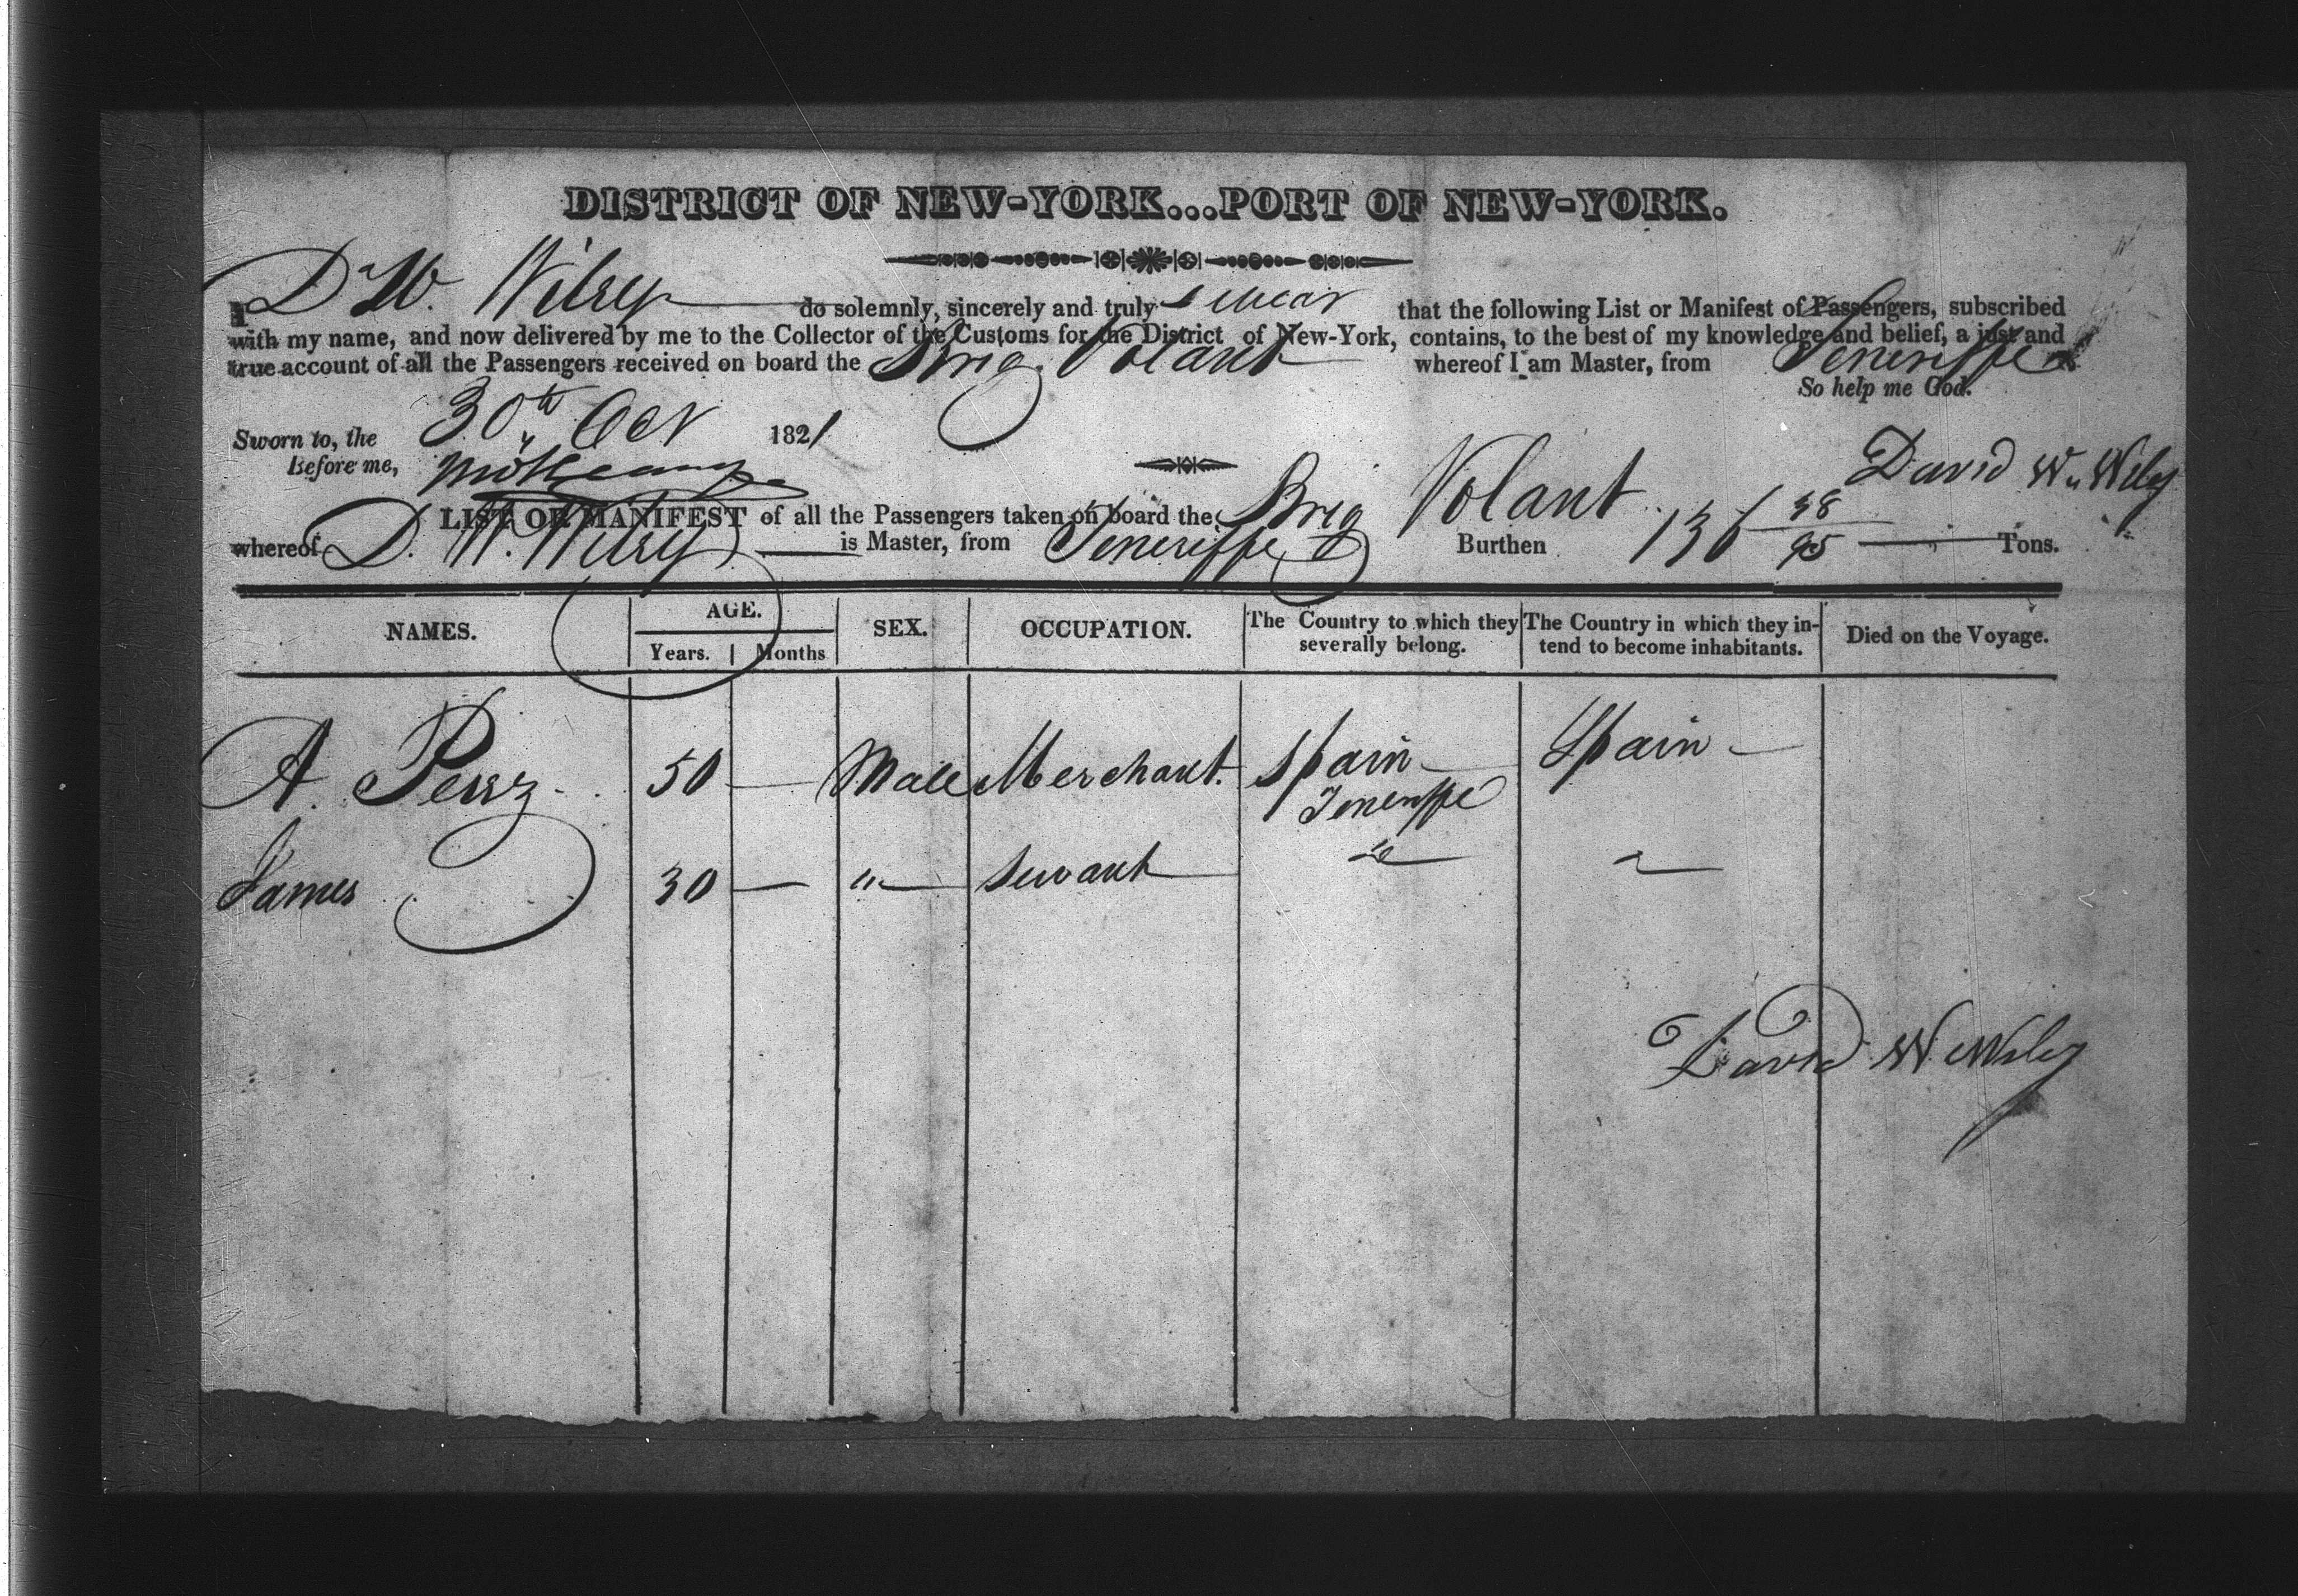 DISTRICT OF NEW-YORK...PORT OF NEW-YORK.
I D W. Wiley do solemnly, sincerely and truly swear that the following List or Manifest of Passengers, subscribed
with my name, and now delivered by me to the Collector of the Customs for the District of New-York, contains, to the best of my knowledge and belief, a just and
true account of all the Passengers received on board the Brig Volant whereof I am Master, from Teneriffe
So help me God.
Sworn to, the 30th Oct 1821
Before me,
David W. Wiley
LIST OR MANIFEST of all the Passengers taken on board the Brig Volant
whereof D. W. Wiley is Master, from Teneriffe Burthen 136 38/95 Tons.
NAMES. AGE. Years. Months SEX. OCCUPATION. The Country to which they severally belong. The Country in which they intend to become inhabitants. Died on the Voyage.
A. Perez 50 — Male Merchant. Spain Spain —
Teneriffe
James 30 — " Servant " "
David W Wiley